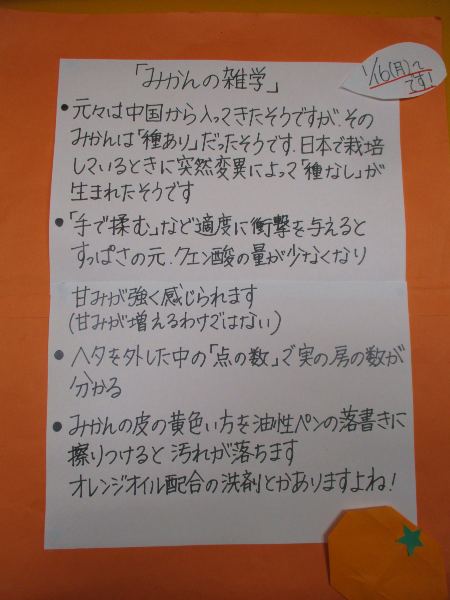 「みかんの雑学」
1/16(月)〜
です!
●元々は中国から入ってきたそうですが、その
みかんは「種あり」だったそうです。日本で栽培
しているときに突然変異によって「種なし」が
生まれたそうです
●「手で揉む」など適度に衝撃を与えると
すっぱさの元、クエン酸の量が少なくなり
甘みが強く感じられます
(甘みが増えるわけではない)
●ヘタを外した中の「点の数」で実の房の数が
分かる
●みかんの皮の黄色い方を油性ペンの落書きに
擦りつけると汚れが落ちます
オレンジオイル配合の洗剤とかありますよね!